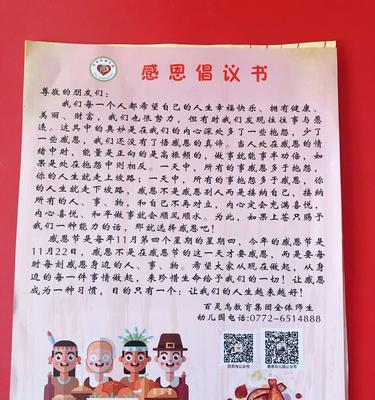 感恩倡议书
尊敬的朋友们：
我们每一个人都希望自己的人生幸福快乐、拥有健康、
美丽、财富，我们也很努力，但有时我们发现往往事与愿
违。这其中的奥妙是在我们的内心深处多了一些抱怨，少了
一些感恩，我们还没有了悟感恩的真谛。当人处在感恩的情
绪中时，能量是正向的是高振频的，做事就能事半功倍，如
果是处在抱怨中则相反。一天中，所有的事感恩多于抱怨，
你的人生就走上坡路，一天中，所有的事抱怨多于感恩，你
的人生就走下坡路，感恩不是感恩别人而是接纳自己，接纳
所有的人、事、物，和自己不再对立，内心定会充满喜悦，
内心喜悦、和平做事就会顺风顺水。为此，如果上苍只赐予
我们一种能力的话，那就选择感恩吧！
感恩节是每年11月第四个星期的星期四，今年的感恩节是
11月22日，感恩不是在感恩节的这一天才要感恩，而是要每
时每刻感恩身边的人、事、物。希望大家从现在做起，从身
边的每一件事情做起，来珍惜生命给予我们的一切！让感恩
成为一种习惯，目的只有一个：让我们的人生越来越好！
百灵鸟教育集团全体师生
幼儿园电话：0772-6514888